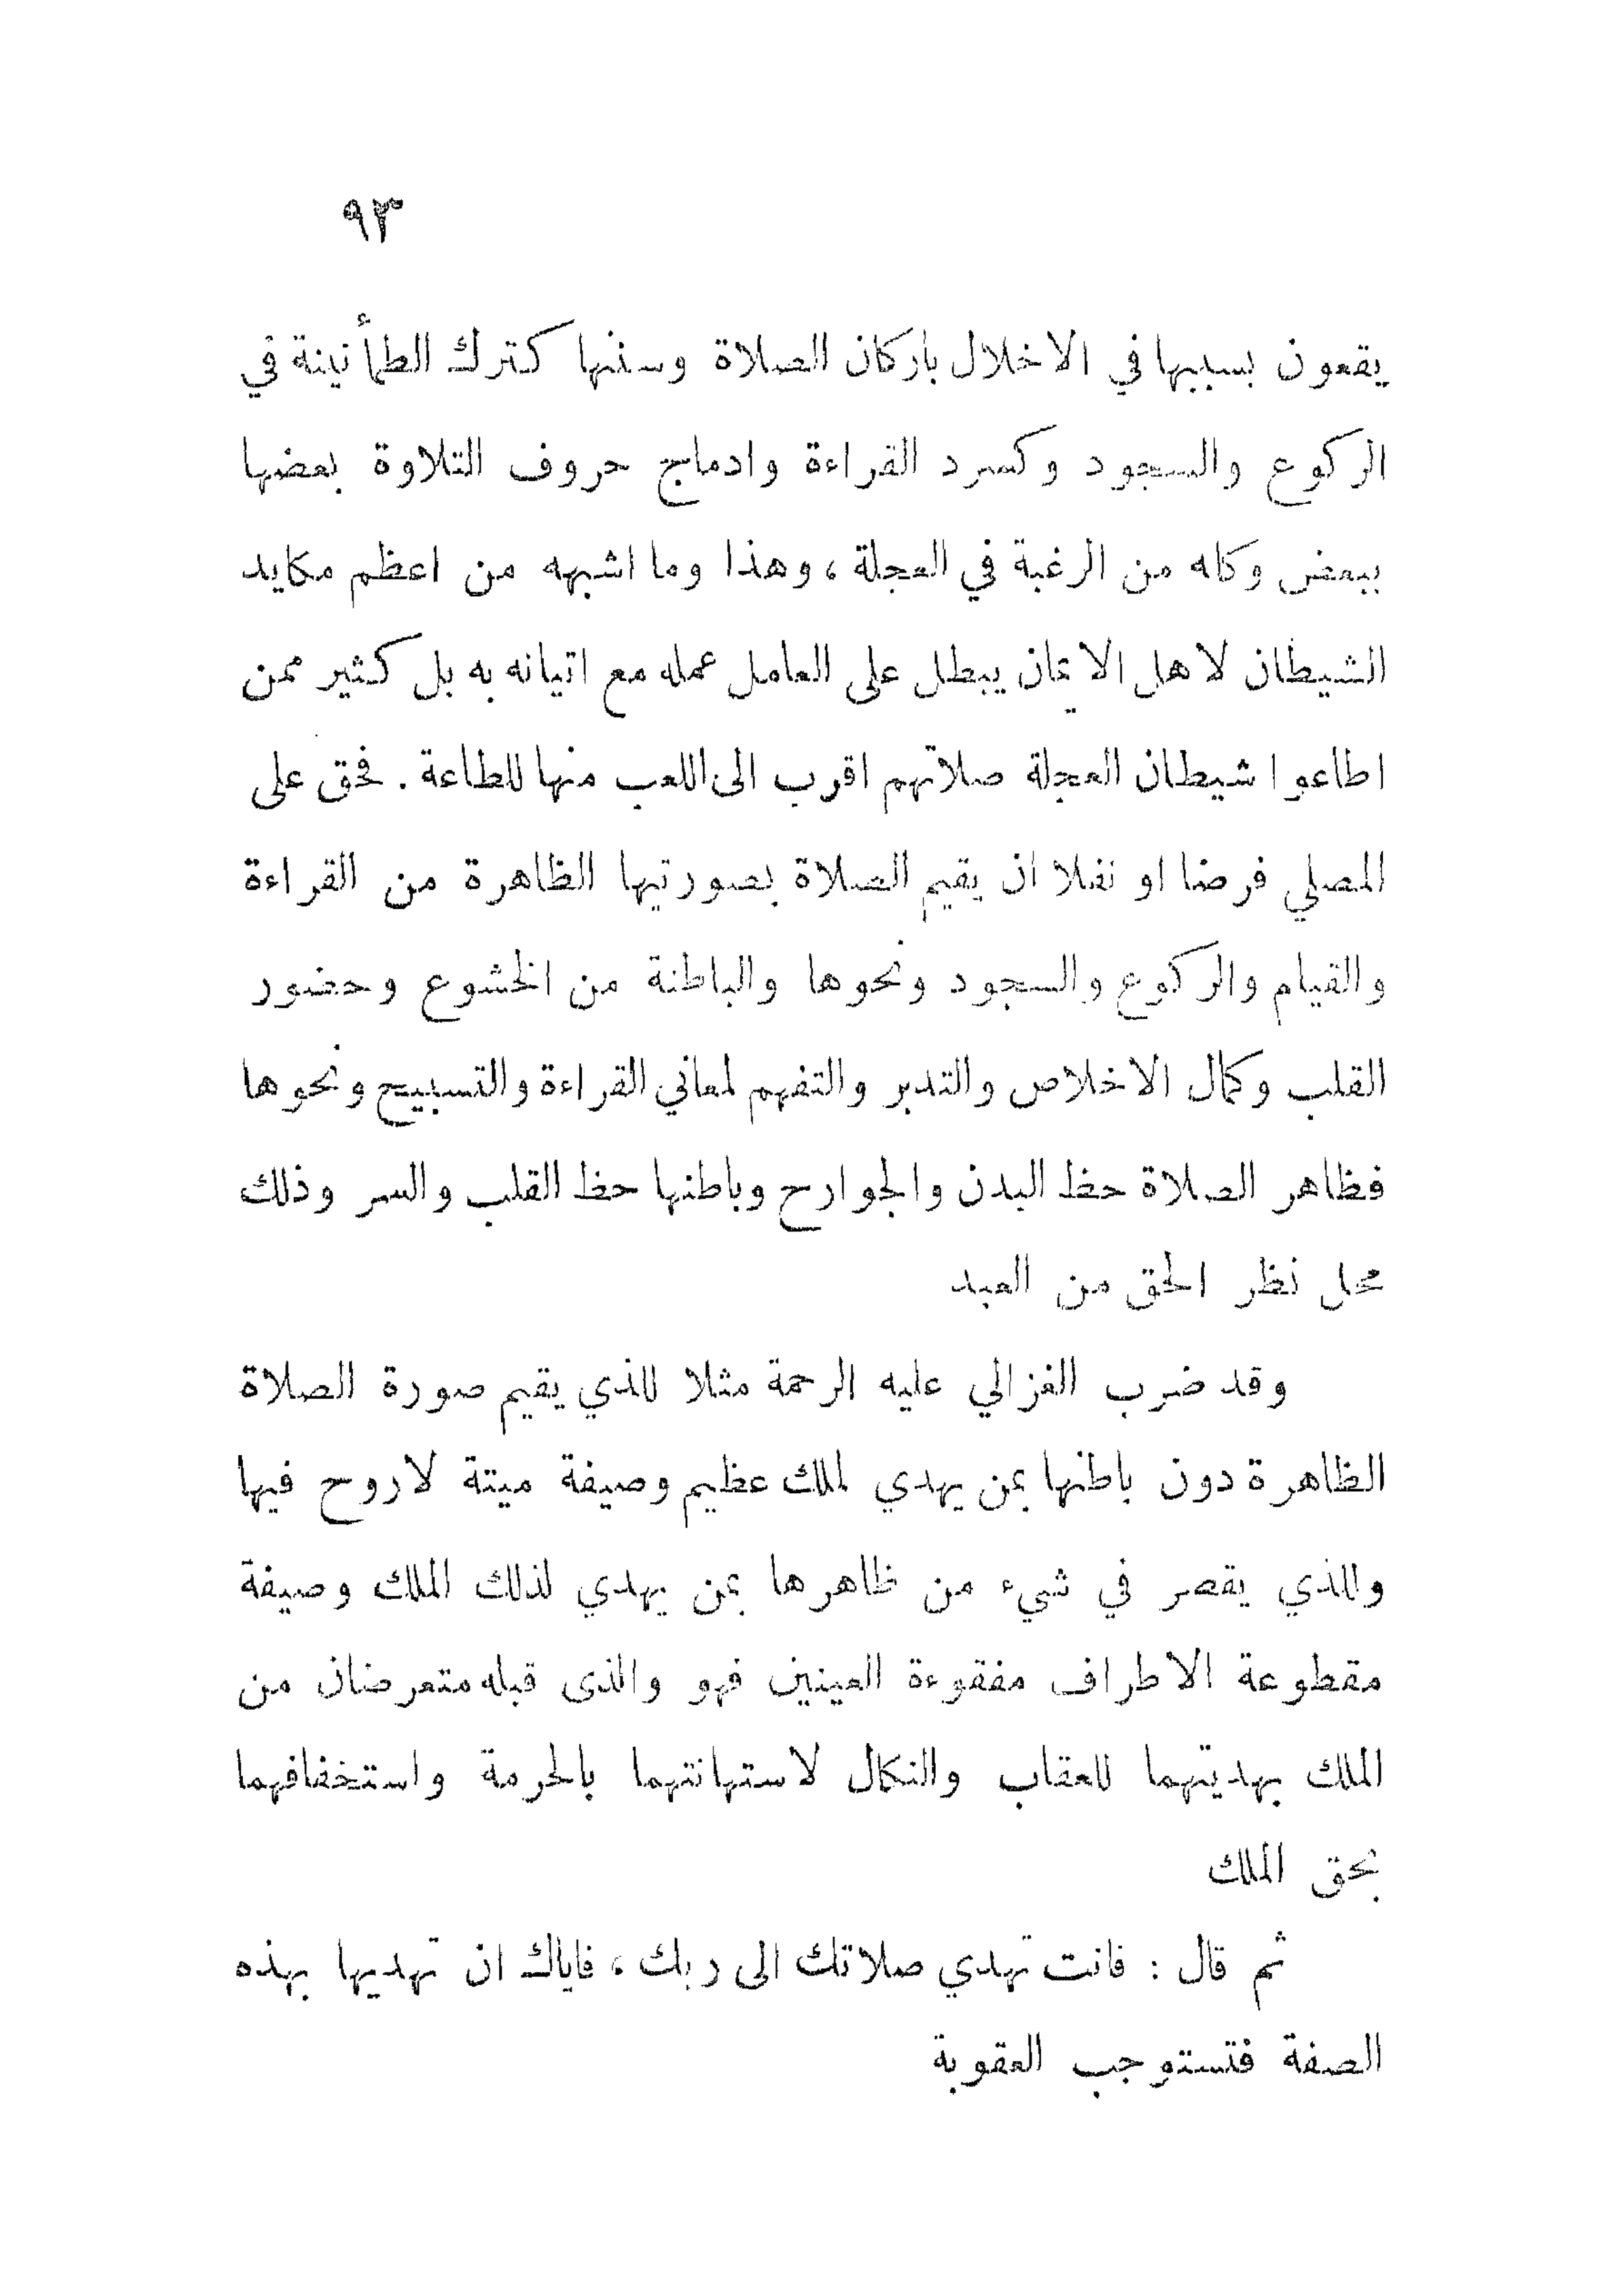 ٩٣
يقعون بسببها في الاخلال باركان الصلاة وسننها كترك الطمأنينة في
الركوع والسجود وكسرد القراءة وادماج حروف التلاوة بعضها
ببعض وكله من الرغبة في العجلة ، وهذا وما اشبهه من اعظم مكايد
الشيطان لاهل الايمان يبطل على العامل عمله مع اتيانه به بل كثير ممن
اطاعوا شيطان العجلة صلاتهم اقرب الى اللعب منها للطاعة . فحق على
المصلي فرضا او نفلا ان يقيم الصلاة بصورتها الظاهرة من القراءة
والقيام والركوع والسجود ونحوها والباطنة من الخشوع وحضور
القلب وكمال الاخلاص والتدبر والتفهم لمعاني القراءة والتسبيح ونحوها
فظاهر الصلاة حظ البدن والجوارح وباطنها حظ القلب والسر وذلك
محل نظر الحق من العبد
وقد ضرب الغزالي عليه الرحمة مثلا للذي يقيم صورة الصلاة
الظاهرة دون باطنها بمن يهدي لملك عظيم وصيفة ميتة لا روح فيها
وللذي يقصر في شيء من ظاهرها بمن يهدي لذلك الملك وصيفة
مقطوعة الاطراف مفقوءة العينين فهو والذى قبله متعرضان من
الملك بهديتهما للعقاب والنكال لاستهانتهما بالحرمة واستخفافهما
بحق الملك
ثم قال : فانت تهدي صلاتك الى ربك ، فاياك ان تهديها بهذه
الصفة فتستوجب العقوبة